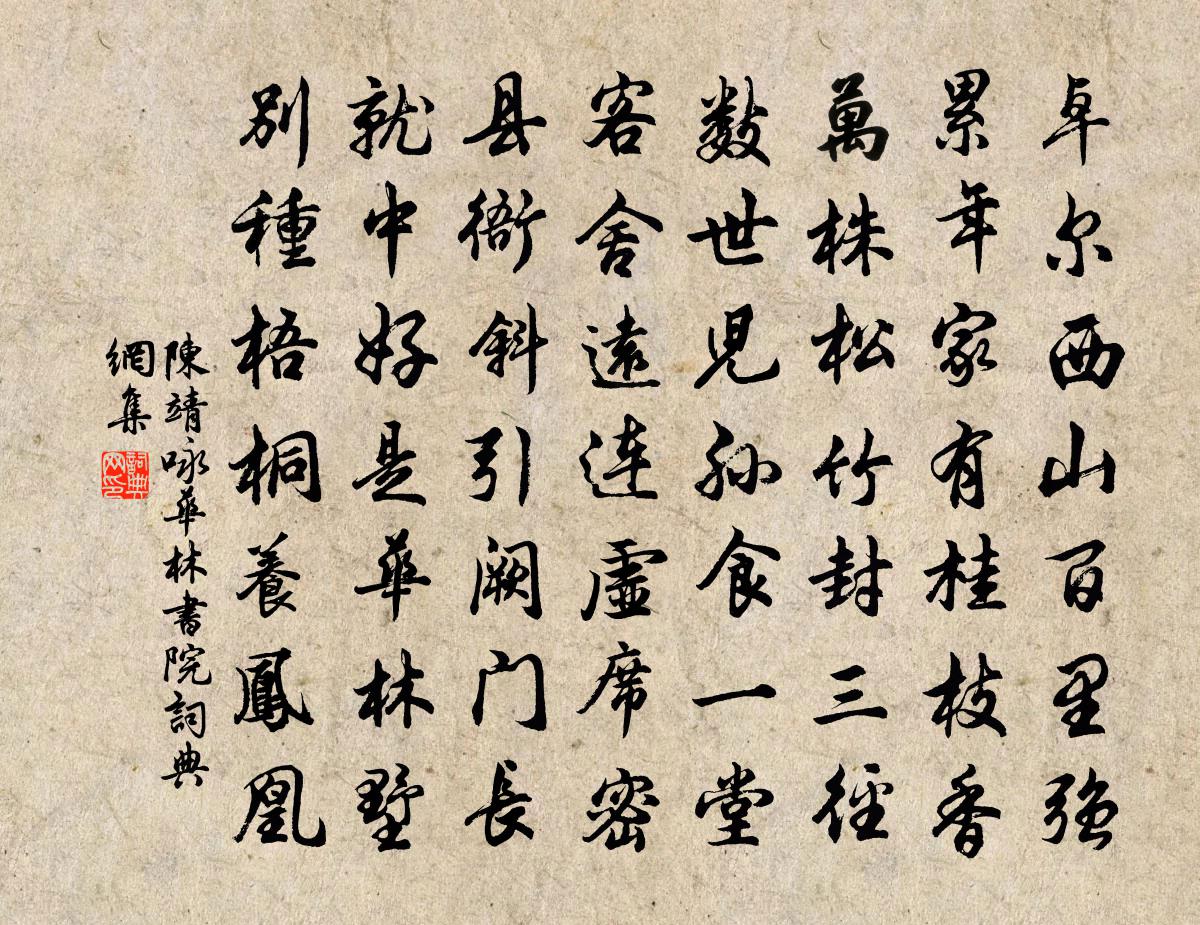 卓尔西山百里强
累年家有桂枝香
萬株松竹封三徑
数世児孫食一堂
客舍遠连虚席密
县衙斜引阙门長
就中好是華林墅
别種梧桐養鳳凰
陳靖咏華林書院詞典
網集
詞典
网印